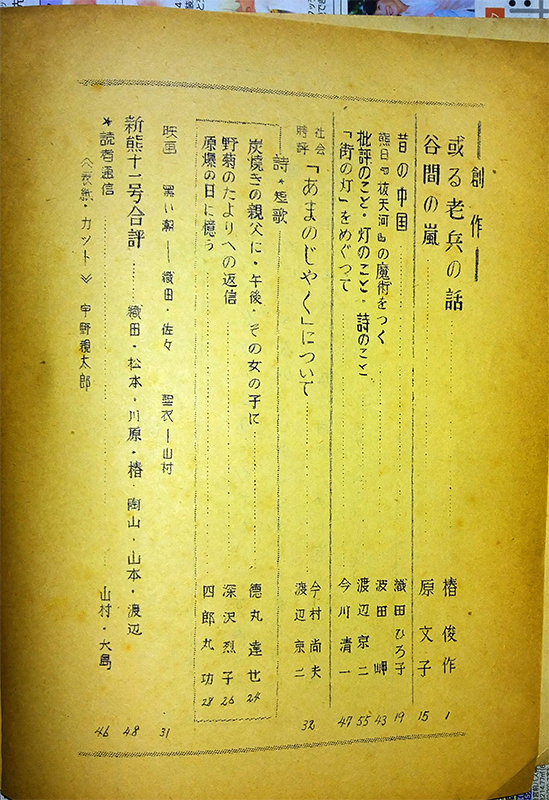 創作
或る老兵の話 椿 俊作 1
谷間の嵐 原 文子 15
昔の中国 織田 ひろ子 19
熊日『抜天河』の魔術をつく 波田 岬 43
批評のこと・灯のこと・詩のこと 渡辺 京二 55
「街の灯」をめぐつて 今川 清一 47
社会時評 「あまのじゃく」について 今村 尚夫 渡辺 京二 32
詩★短歌
炭焼きの親父に・午後・その女の子に 徳丸 達也 24
野菊のたよりへの返信 深沢 烈子 26
原爆の日に憶う 四郎丸 功 28
映画 黒い潮―織田・佐々 聖衣―山村 31
新熊十一号合評 織田・松本・川原・椿 陶山・山本・渡辺 48
★読者通信 山村・大島 46
《表紙・カット》 宇野 太郎